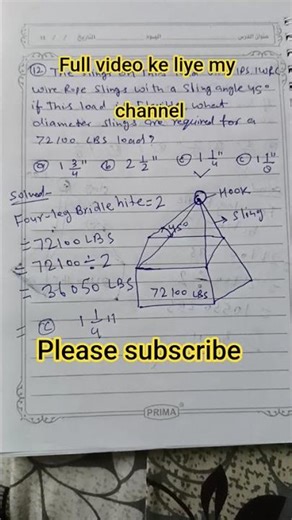 عنوان الدرس
اليوم
التاريخ
PRIMA
Full video ke liye my
channel
12) The slings on this load are IPS IWRC
wire Rope slings with a sling angle 45°
if This load is Flexible what
diameter slings are required for a
72100 LBS load?
a 1 3/4" b 2 1/2" c 1 1/4" 1 1/8"
Solved-
Four-leg Bridle hite = 2
= 72100 LBS
= 72100 ÷ 2
= 36050 LBS
c 1 1/4"
Hook
Sling
45°
72100 LBS
Please subscribe
PRIMA